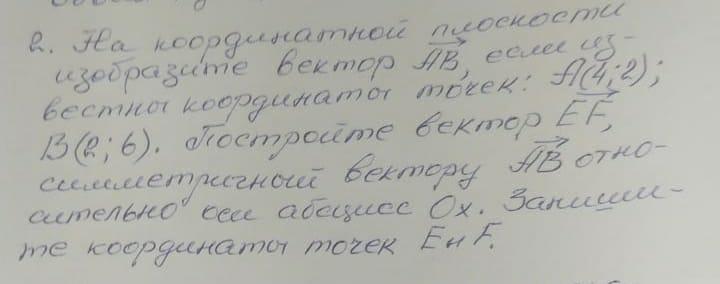 2. На координатной плоскости
изобразите вектор AB, если из-
вестны координаты точек: A(4;2);
B(2;6). Постройте вектор EF,
симметричный вектору AB отно-
сительно оси абсцисс Ox. Запиши-
те координаты точек E и F.